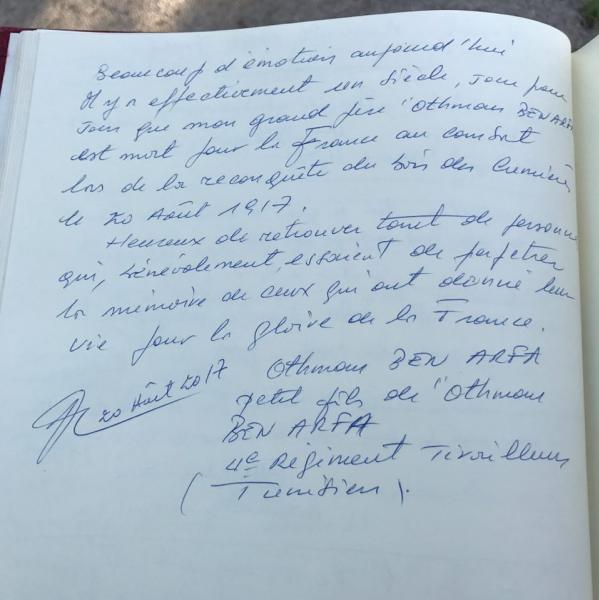 Beaucoup d'émotion aujourd'hui
Il y a effectivement un siècle, jour pour
jour que mon grand père l'Othman BEN ARFA
est mort pour la France au combat
lors de la reconquête du bois des Cumières
le 20 Août 1917.
Heureux de retrouver tant de personnes
qui, bénévolement, essaient de perpetrer
la mémoire de ceux qui ont donné leur
vie pour la gloire de la France.
Othman BEN ARFA
20 Août 2017
petit fils de l'Othman
BEN ARFA
4e Régiment Tirailleurs
(Tunisien).